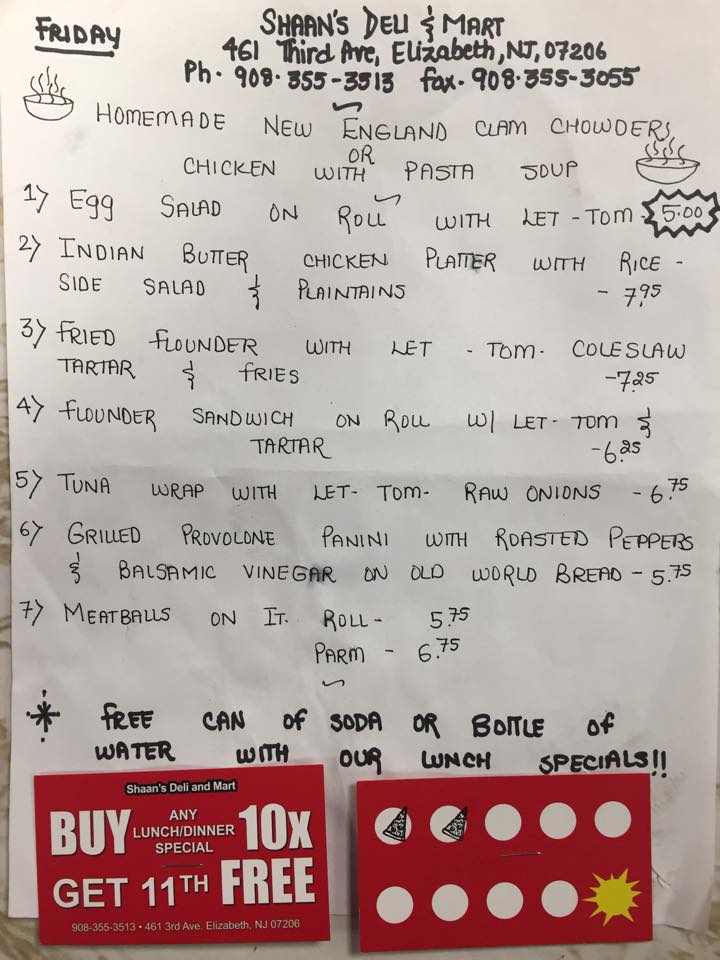 FRIDAY
SHAAN'S DELI & MART
461 Third Ave, Elizabeth, NJ, 07206
Ph. 908-355-3513 fax. 908-355-3055
HOMEMADE NEW ENGLAND CLAM CHOWDERS
OR
CHICKEN WITH PASTA SOUP
1) Egg SALAD ON ROLL WITH LET - TOM - 5.00
2) INDIAN BUTTER CHICKEN PLATTER WITH RICE -
SIDE SALAD & PLAINTAINS - 7.95
3) FRIED FLOUNDER WITH LET - TOM - COLESLAW
TARTAR & FRIES -7.25
4) FLOUNDER SANDWICH ON ROLL W/ LET - TOM &
TARTAR -6.25
5) TUNA WRAP WITH LET- TOM- RAW ONIONS - 6.75
6) GRILLED PROVOLONE PANINI WITH ROASTED PEPPERS
& BALSAMIC VINEGAR ON OLD WORLD BREAD - 5.75
7) MEATBALLS ON IT. ROLL - 5.75
PARM - 6.75
* FREE CAN OF SODA OR BOTTLE OF
WATER WITH OUR LUNCH SPECIALS!!
Shaan's Deli and Mart
BUY ANY LUNCH/DINNER SPECIAL 10x
GET 11TH FREE
908-355-3513 • 461 3rd Ave. Elizabeth, NJ 07206